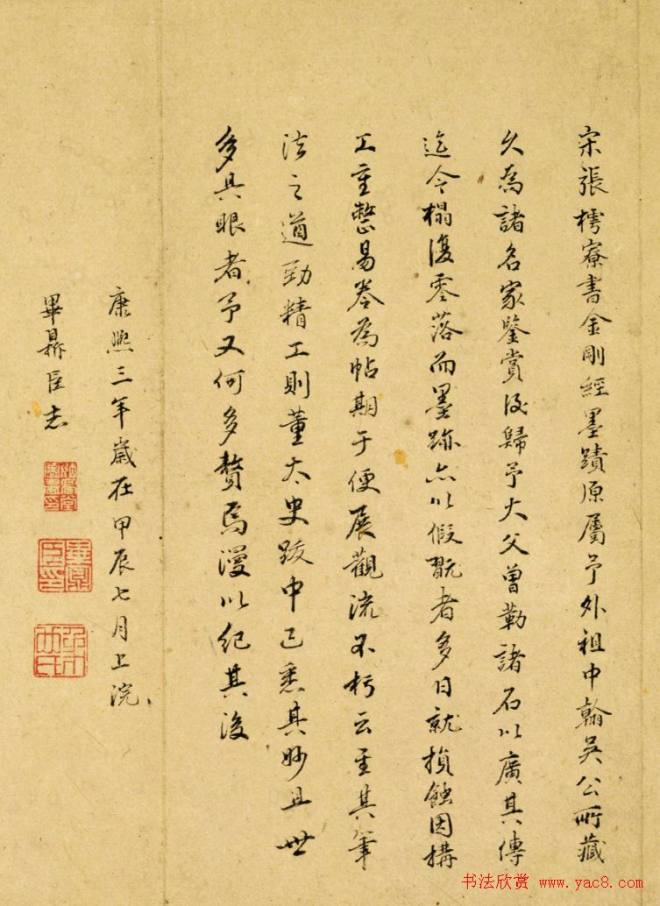 宋張樗寮書金剛經墨蹟原屬予外祖中翰吳公所藏
久為諸名家鑒賞後歸予大父曾勒諸石以廣其傳
迄今榻復零落而墨跡亦以假翫者多日就損蝕因搆
工重整易卷為帖期于便展觀流不朽云至其筆
法之遒勁精工則董太史跋中已悉其妙且世
多具眼者予又何多贅焉漫以紀其後
康熙三年歲在甲辰七月上浣
畢鼎臣志
书法欣赏 www.yac8.com